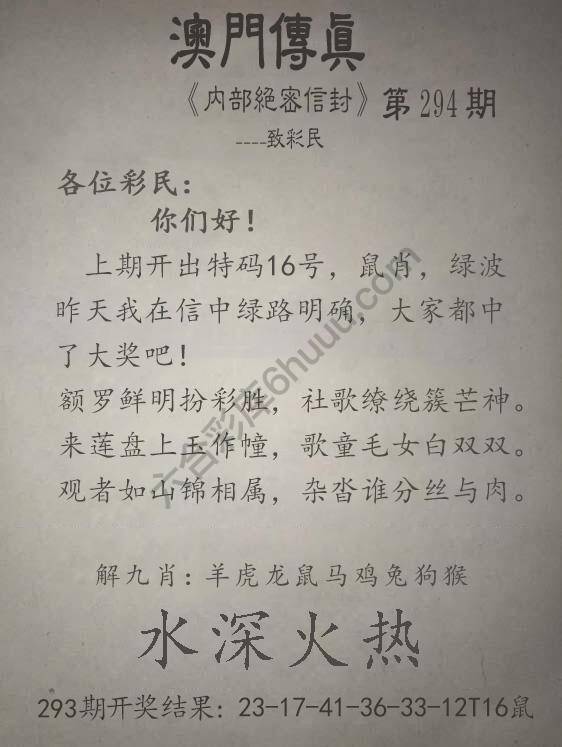 澳門傳眞
《内部絕密信封》第294期
----致彩民
各位彩民：
你们好！
上期开出特码16号，鼠肖，绿波
昨天我在信中绿路明确，大家都中
了大奖吧！
额罗鲜明扮彩胜，社歌缭绕簇芒神。
来莲盘上玉作幢，歌童毛女白双双。
观者如山锦相属，杂沓谁分丝与肉。
解九肖：羊虎龙鼠马鸡兔狗猴
水深火热
293期开奖结果：23-17-41-36-33-12T16鼠
六合彩库6huuu.com